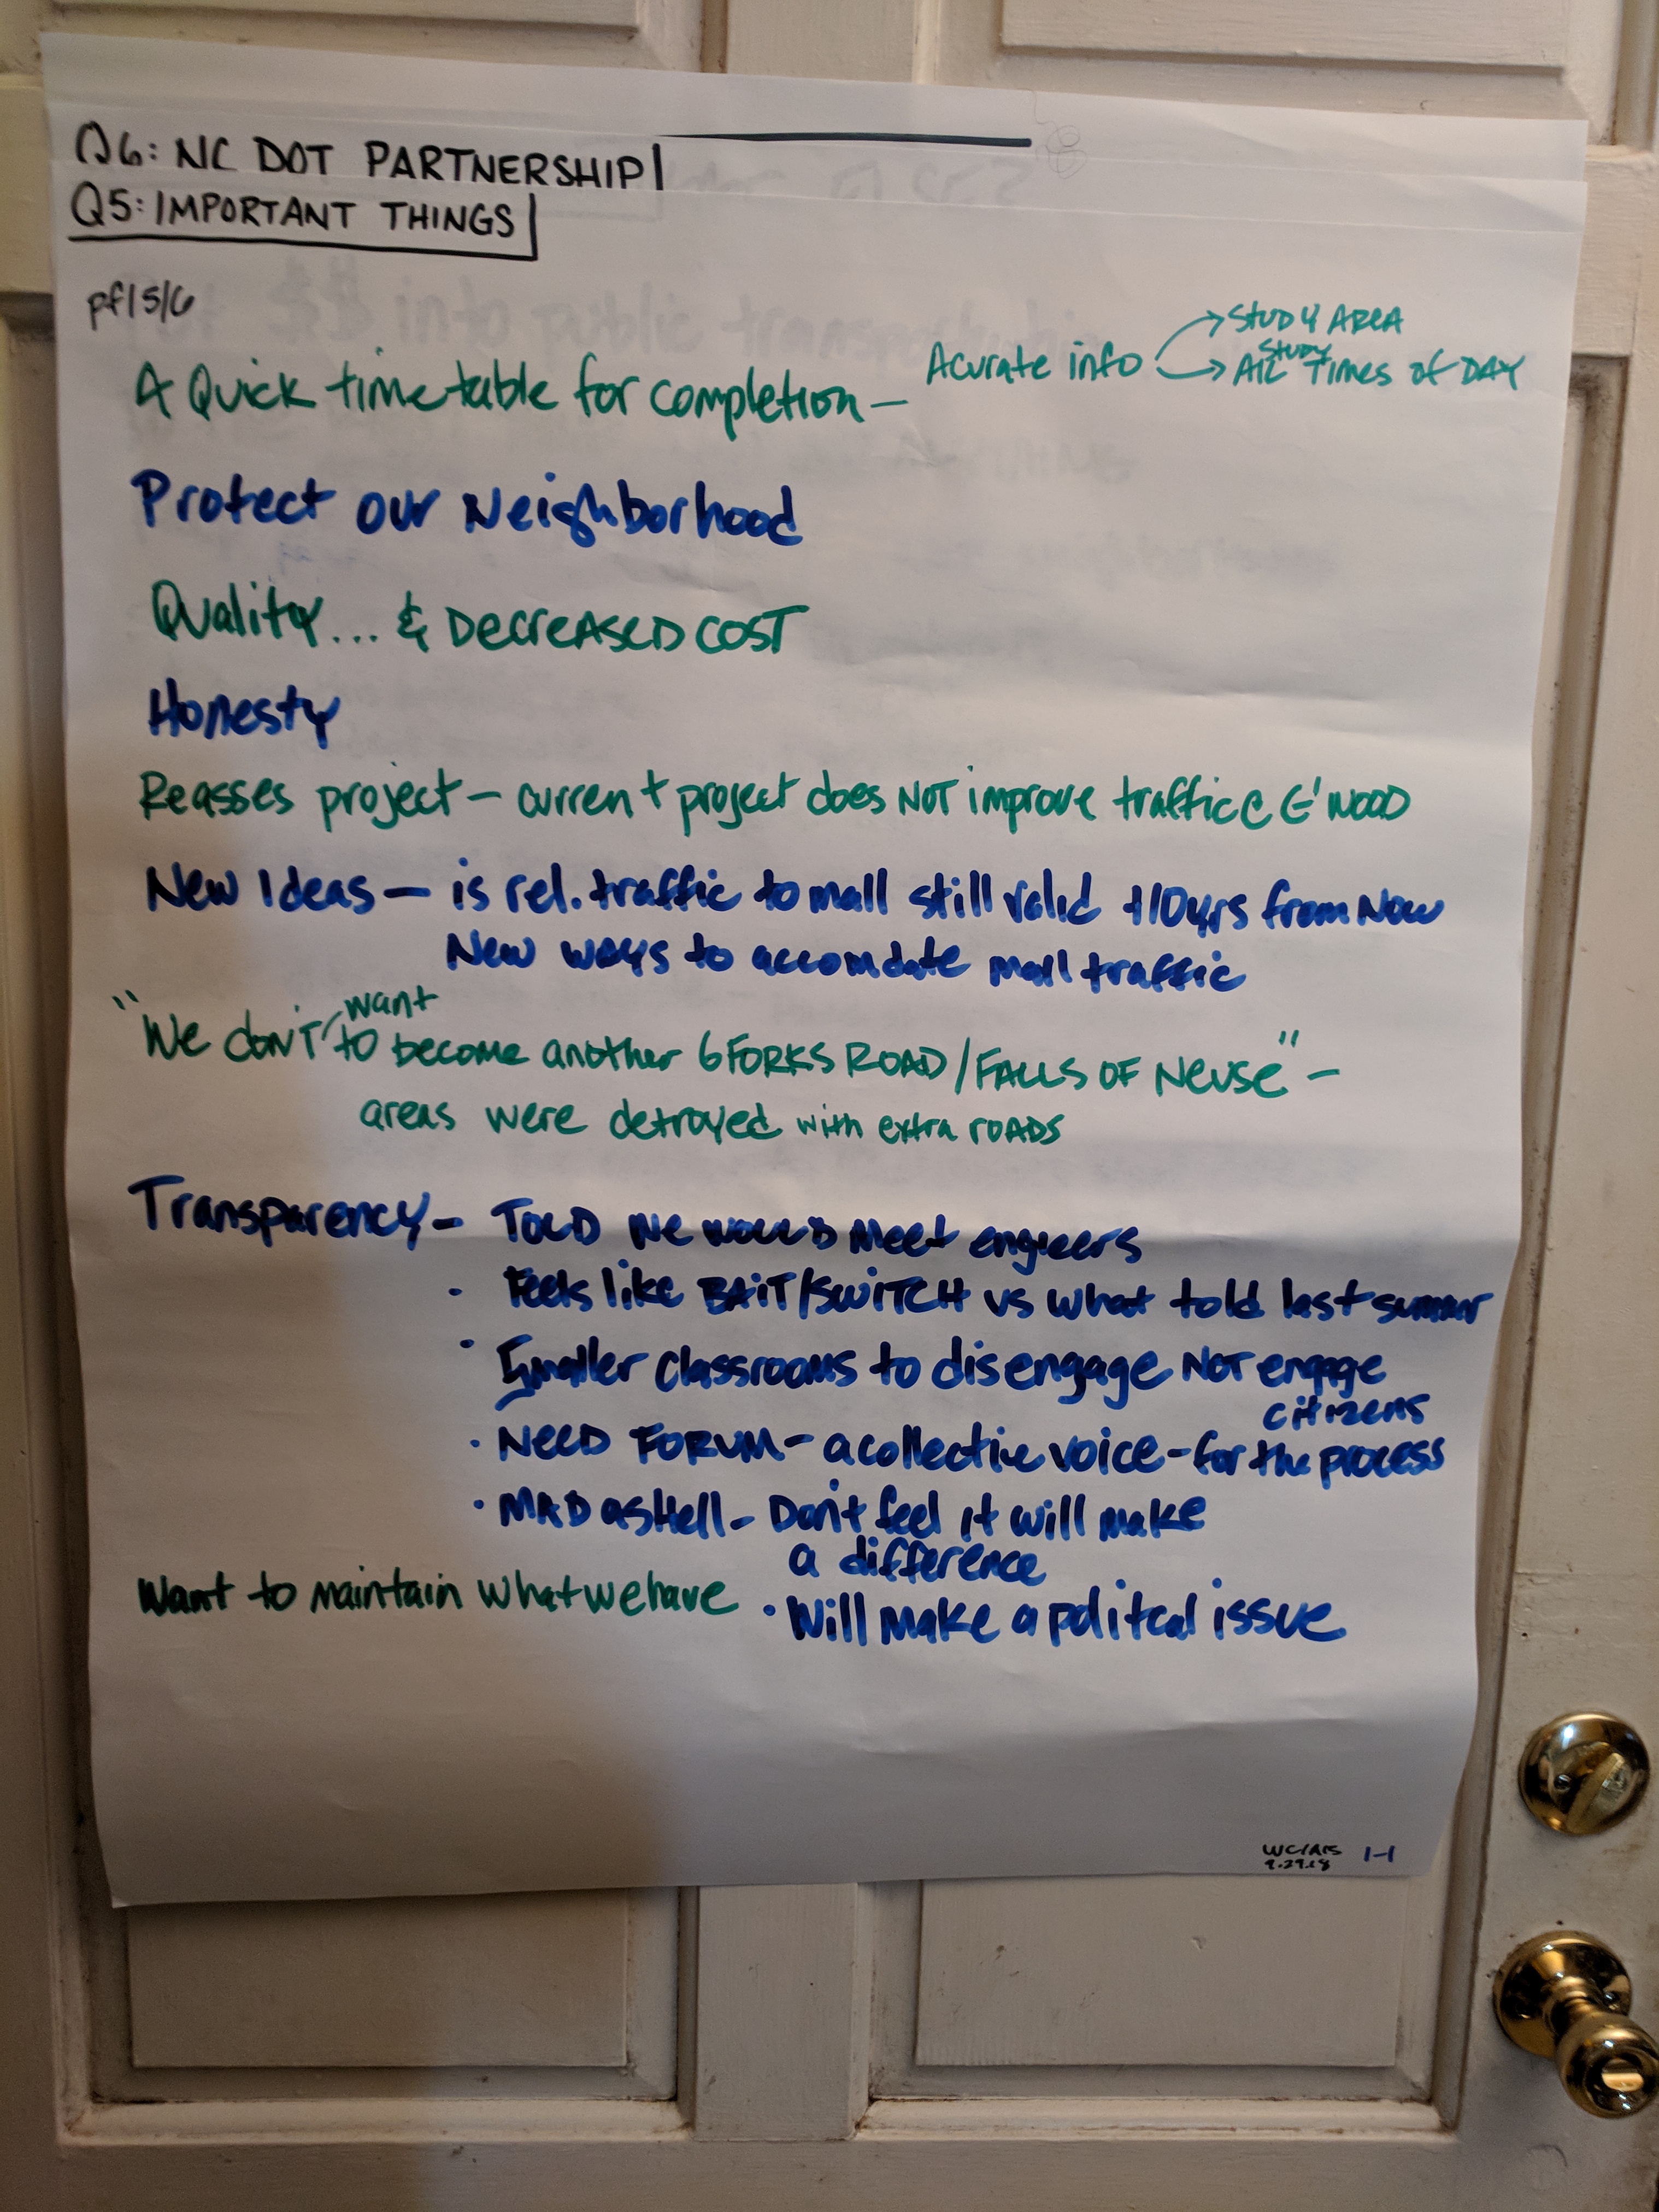 Q6: NC DOT PARTNERSHIP
Q5: IMPORTANT THINGS
pf15/6
A Quick timetable for completion — Acurate info
STUDY AREA
Study
All Times of DAY
Protect our Neighborhood
Quality... & DECREASED COST
Honesty
Reasses project — current project does NOT improve traffic @ G'WOOD
New Ideas — is rel. traffic to mall still valid +10yrs from Now
New ways to accomdate mall traffic
"We don't want to become another 6 FORKS ROAD/FALLS OF NEUSE" —
areas were detroyed with extra ROADS
Transparency — TOLD we would meet engieers
· Feels like BAIT/SWITCH vs what told last summer
· Smaller classrooms to disengage NOT engage
citizens
· NEED FORUM - a collective voice - for the process
· MAD as Hell - Don't feel it will make
a difference
Want to maintain what we have
· Will make a politcal issue
9.29.18
1-1